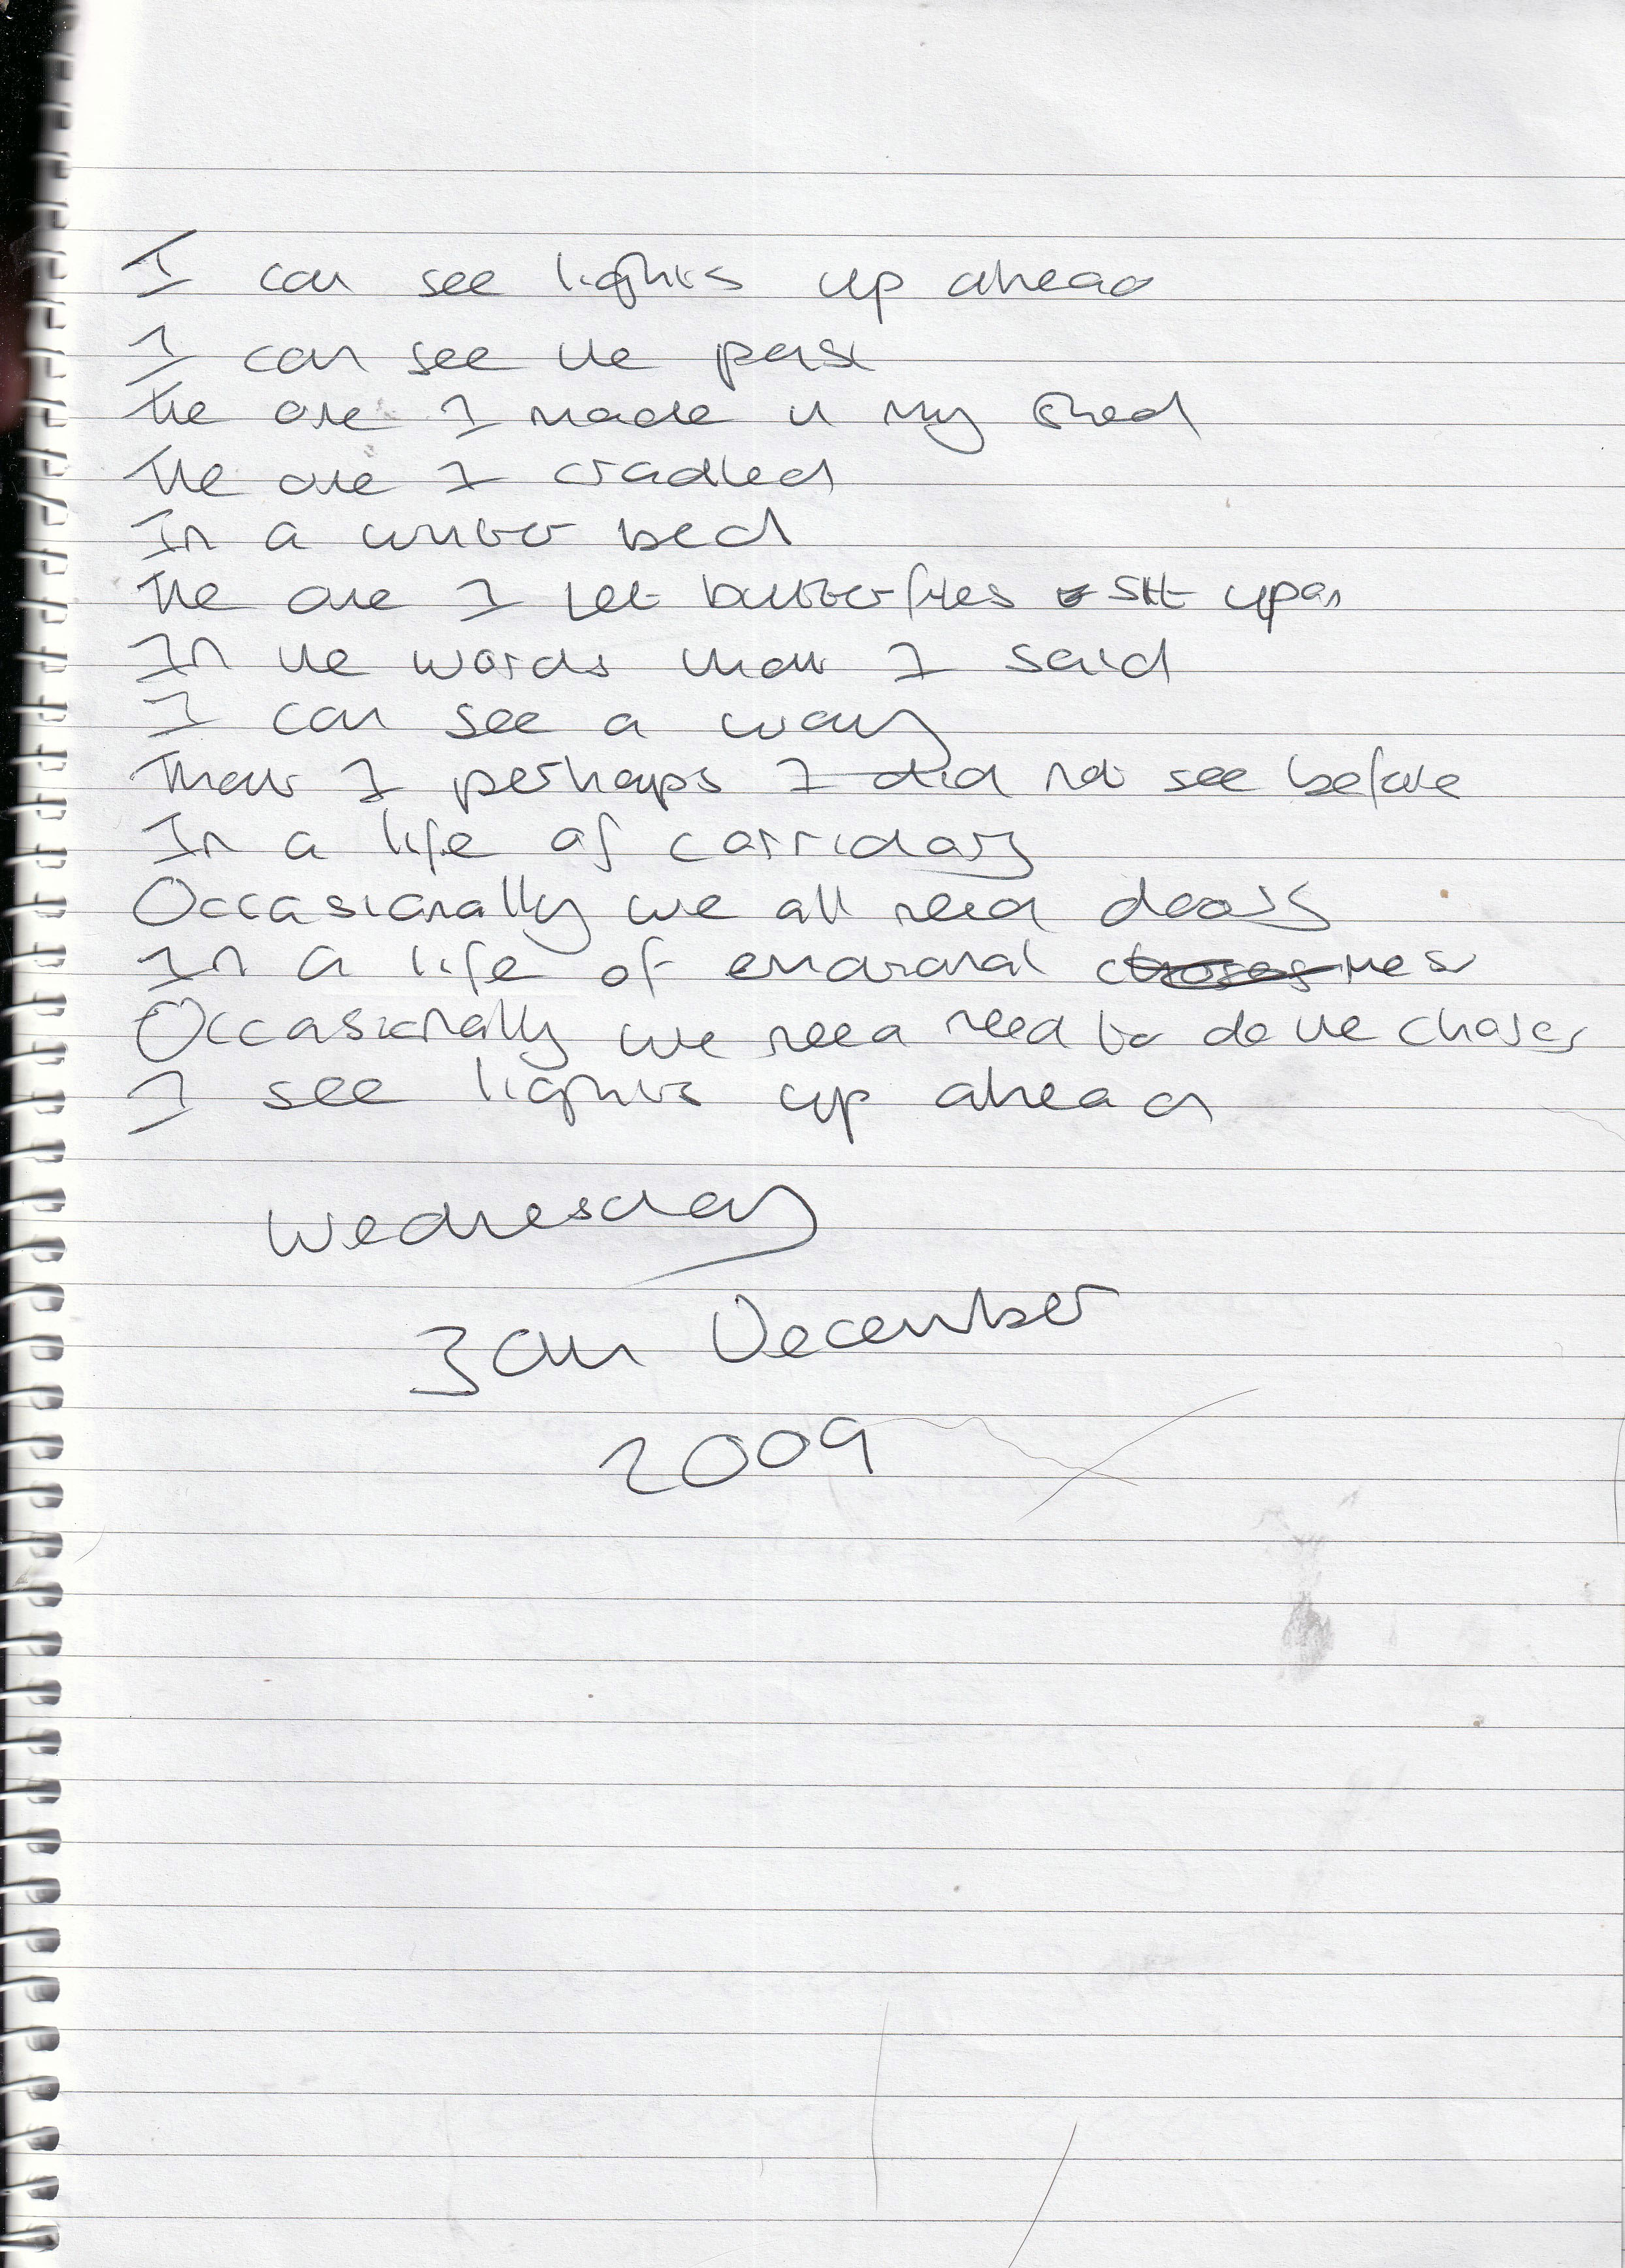 I can see lights up ahead
I can see the past
The one I made in my shed
The one I cradled
In a winter bed
The one I let butterflies sit upon
In the words that I said
I can see a way
That I perhaps I did not see before
In a life of corridors
Occasionally we all need doors
In a life of emotional
Occasionally we need need to do the chores
I see lights up ahead
Wednesday
30th December
2009